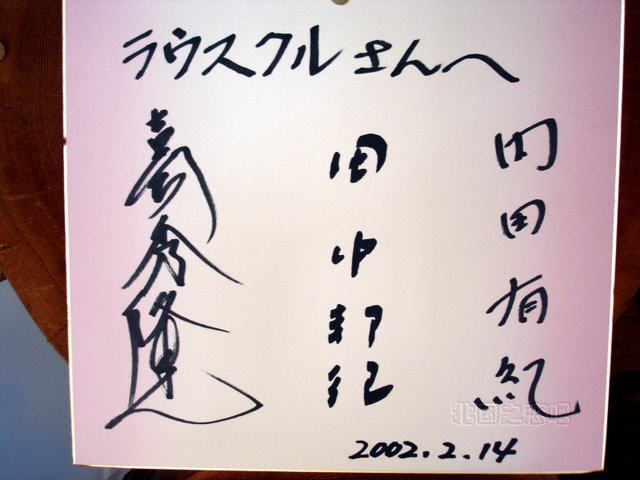 ラウスクルさんへ
内田有紀
田中邦衛
吉岡秀隆
2002.2.14
北国之恋吧